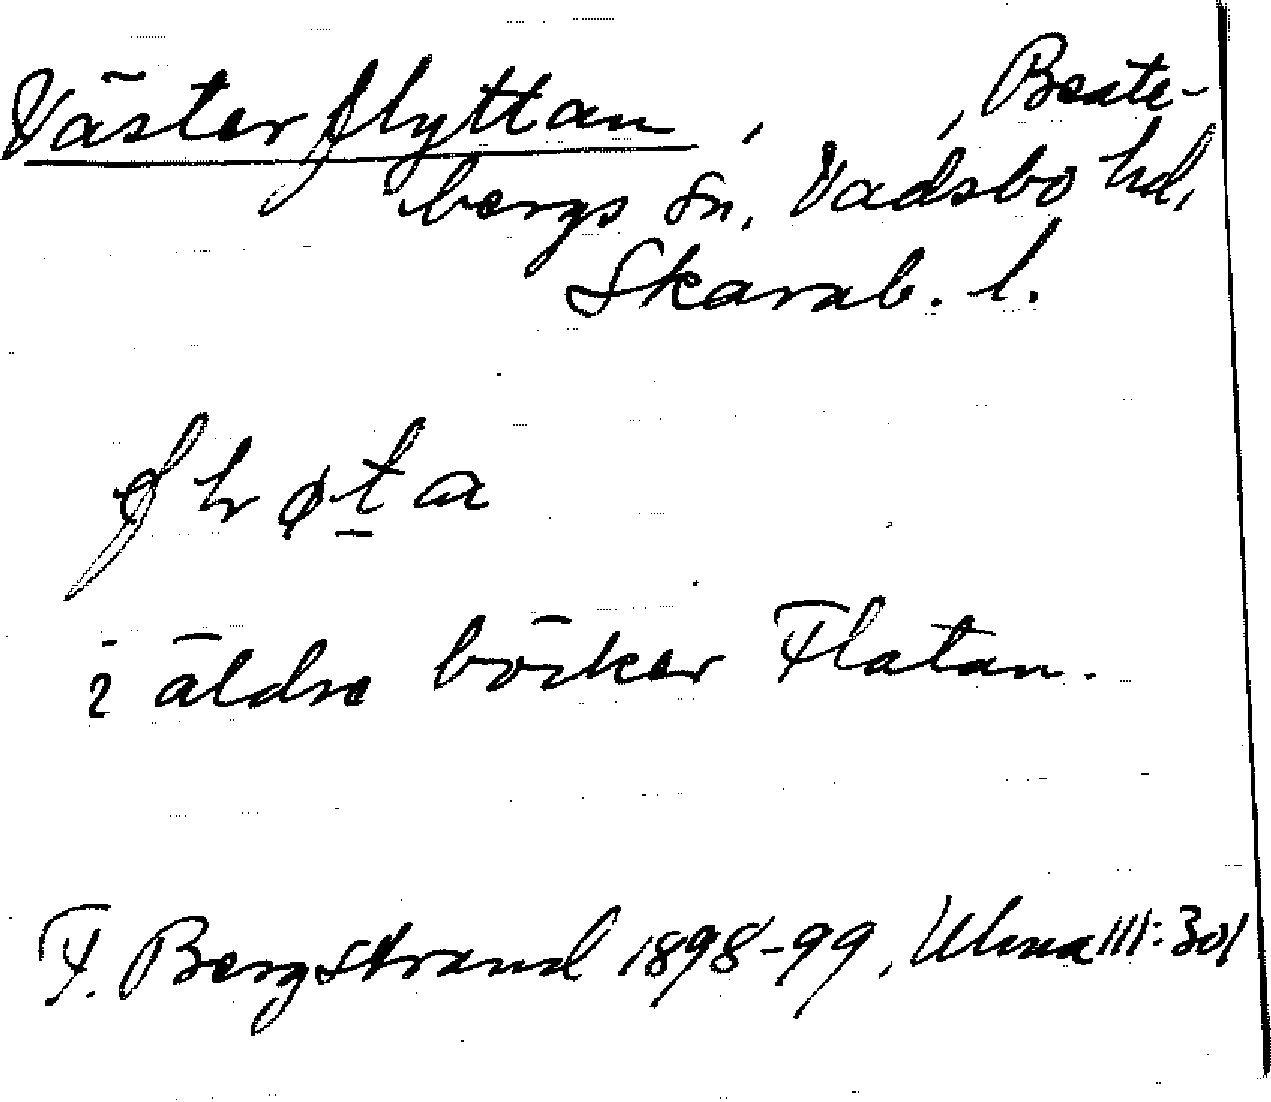 Västerflyttan, , Beate-
bergs sn. Vadsbo hd,
Skarab. l.
i äldre böcker Flatan.
F. Bergstrand 1898-99, Ulma 111:301